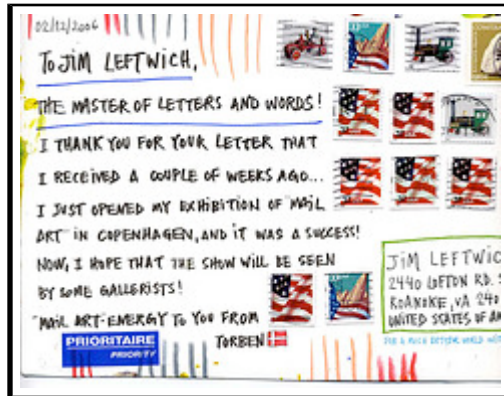 02/12/2006
TO JIM LEFTWICH,
THE MASTER OF LETTERS AND WORDS!
I THANK YOU FOR YOUR LETTER THAT
I RECEIVED A COUPLE OF WEEKS AGO...
I JUST OPENED MY EXHIBITION OF MAIL
ART IN COPENHAGEN, AND IT WAS A SUCCESS!
NOW, I HOPE THAT THE SHOW WILL BE SEEN
BY SOME GALLERISTS!
MAIL ART-ENERGY TO YOU FROM
TORBEN
PRIORITAIRE
PRIORITY
JIM LEFTWIC
2440 LOFTON RD. S
ROANOKE, VA 240
UNITED STATES OF AM
FOR A MUCH BETTER WORLD